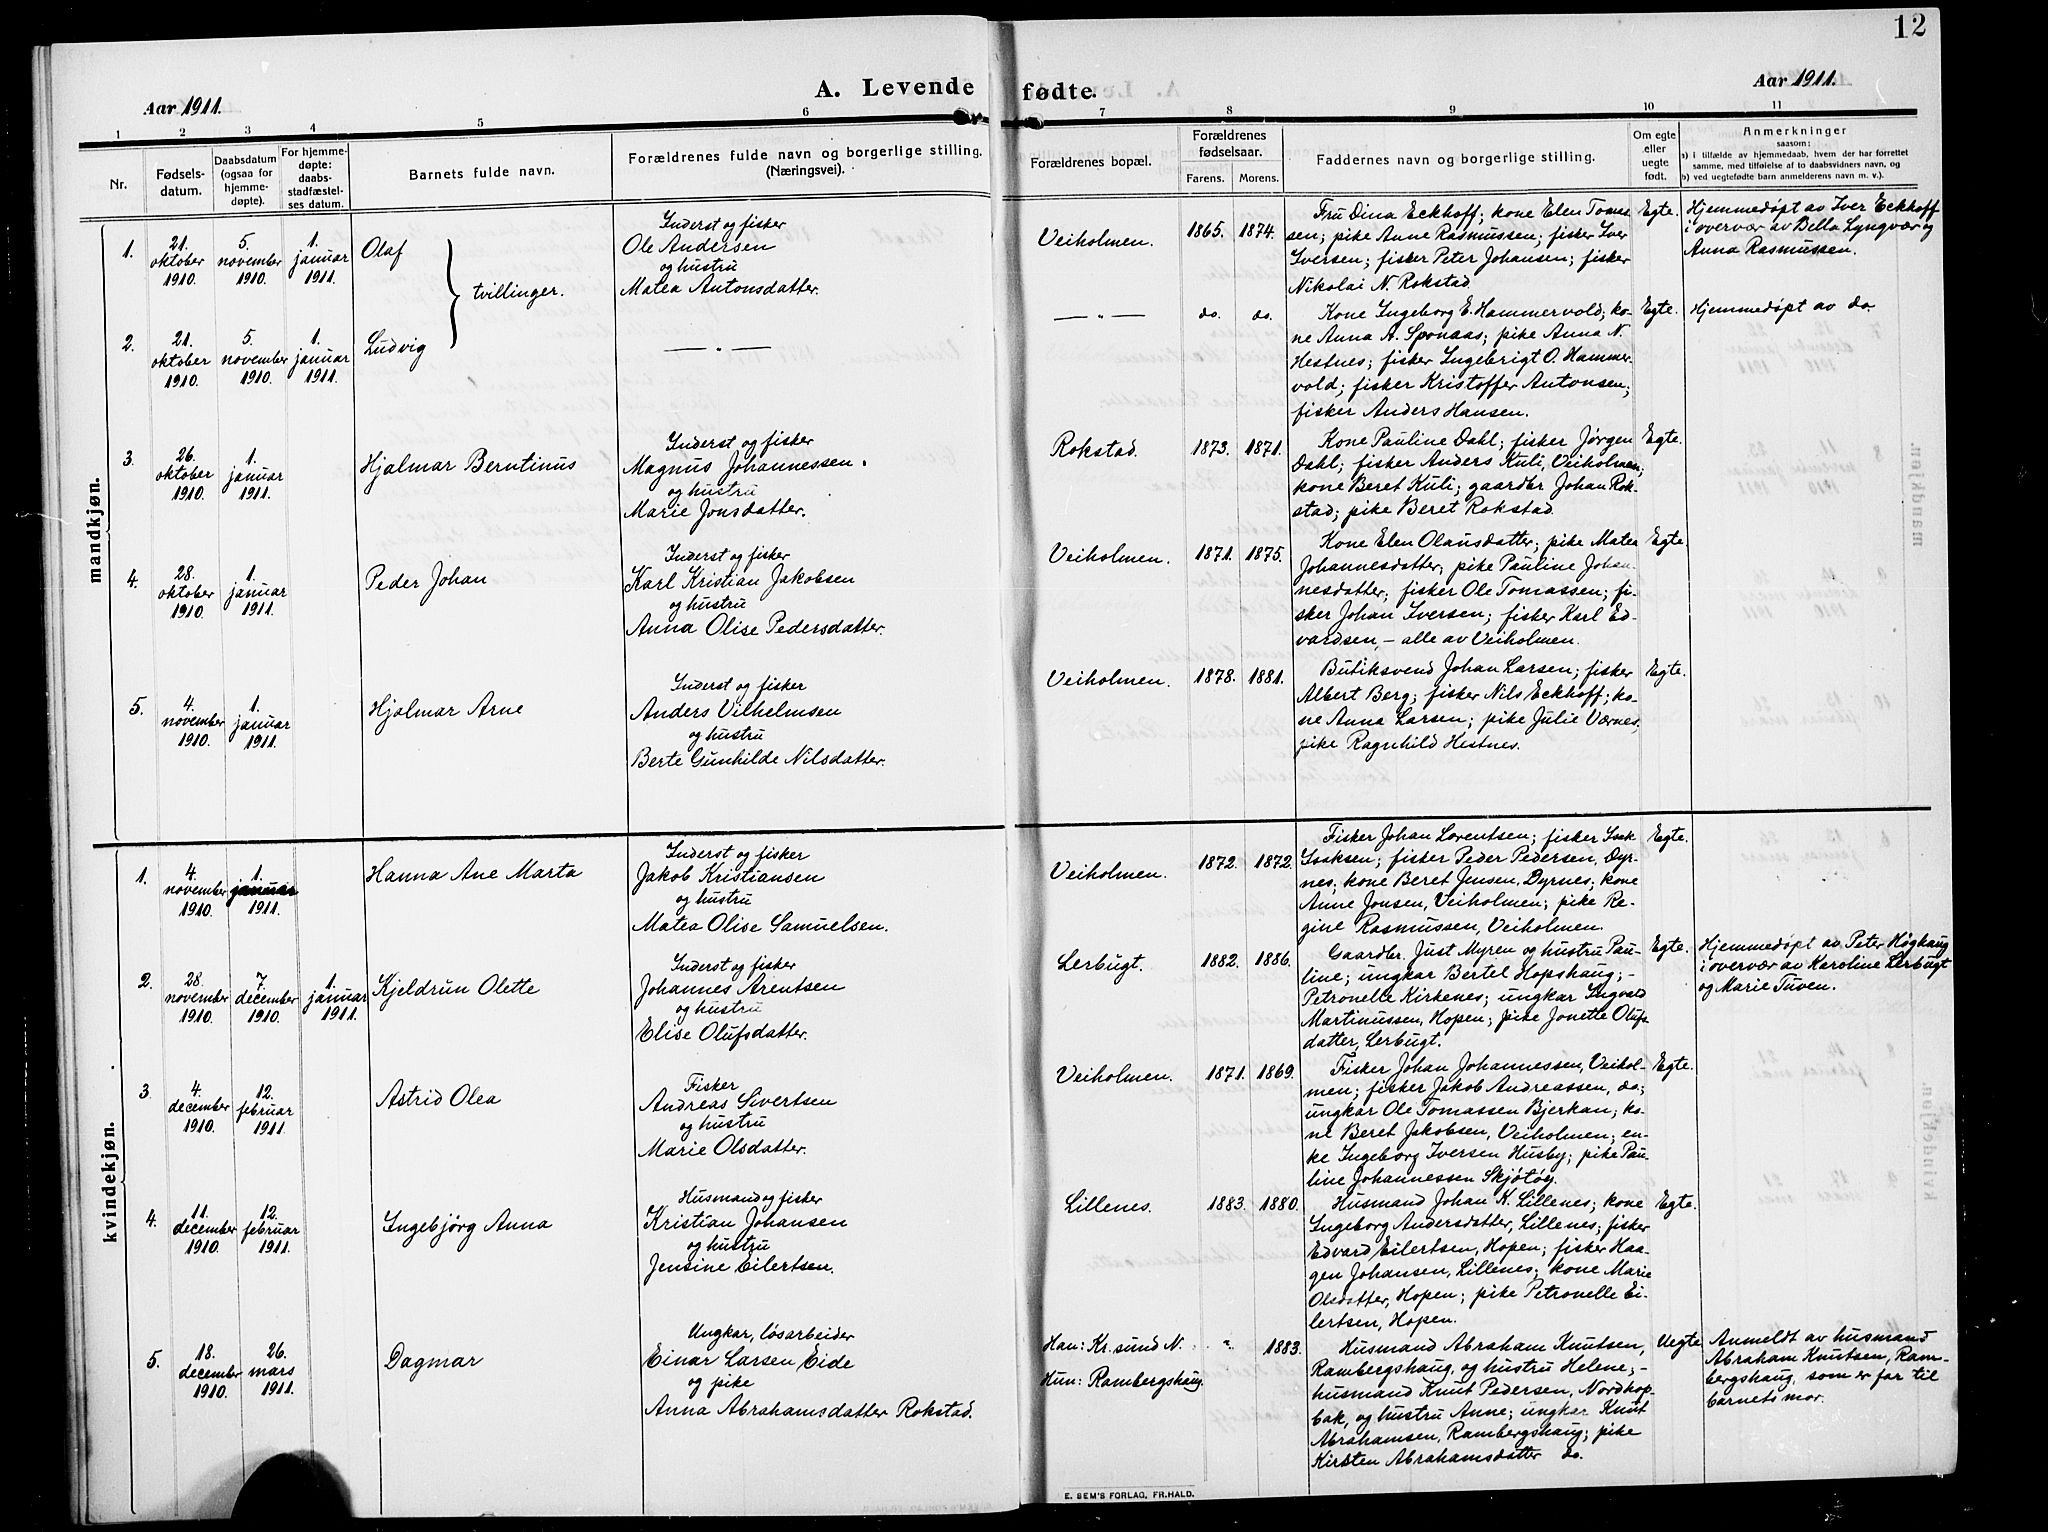 12
A. Levende fødte.
Aar 1911.
Aar 1911.
1 2 3 4 5 6 7 8 9 10 11
Nr.
Fødsels-
datum.
Daabsdatum
(ogsaa for
hjemme-
døpte).
For hjemme-
døpte:
daabs-
stadfæstel-
ses datum.
Barnets fulde navn.
Forældrenes fulde navn og borgerlige stilling.
(Næringsvei).
Forældrenes bopæl.
Forældrenes
fødselsaar.
Farens. Morens.
Faddernes navn og borgerlige stilling.
Om egte
eller
uegte
født.
Anmerkninger
saasom:
a) i tilfælde av hjemmedaab, hvem der har forrettet
samme, med tilføielse af to daabsvidners navn, og
b) ved uegtefødte barn anmelderens navn m. v.).
mandkjøn.
1.
21.
oktober
1910.
5.
november
1910.
1.
januar
1911.
Olaf
tvillinger.
Inderst og fisker
Ole Andersen
og hustru
Matea Antonsdatter.
Veiholmen.
1865. 1874.
Fru Dina Eckhoff; kone Elen Tomes-
sen; pike Anne Rasmussen; fisker Iver
Iversen; fisker Peter Johansen; fisker
Nikolai N. Rokstad.
Egte.
Hjemmedøpt av Iver Eckhoff
i overvær av Bella Lyngvær og
Anna Rasmussen.
2.
21.
oktober
1910.
5.
november
1910.
1.
januar
1911.
Ludvig
— „ —
— „ —
do. do.
Kone Ingeborg E. Hammervold; ko-
ne Anna A. Sponaas; pike Anna N.
Hestnes; fisker Ingebrigt O. Hammer-
vold; fisker Kristoffer Antonsen;
fisker Anders Hansen.
Egte.
Hjemmedøpt av do.
3.
26.
oktober
1910.
1.
januar
1911.
Hjalmar Berntinus
Inderst og fisker
Magnus Johannessen.
og hustru
Marie Jonsdatter.
Rokstad.
1873. 1871.
Kone Pauline Dahl; fisker Jørgen
Dahl; fisker Anders Kuli, Veiholmen;
kone Beret Kuli; gaardbr Johan Rok-
stad; pike Beret Rokstad.
Egte.
4.
28.
oktober
1910.
1.
januar
1911.
Peder Johan
Inderst og fisker
Karl Kristian Jakobsen
og hustru
Anna Olise Pedersdatter.
Veiholmen.
1871. 1875.
Kone Elen Olausdatter; pike Matea
Johannesdatter; pike Pauline Johan-
nesdatter; fisker Ole Tomassen; fi-
sker Johan Iversen; fisker Karl Ed-
vardsen, – alle av Veiholmen.
Egte.
5.
4.
november
1910.
1.
januar
1911.
Hjalmar Arne
Inderst og fisker
Anders Vilhelmsen
og hustru
Berte Gunhilde Nilsdatter.
Veiholmen.
1878. 1881.
Butiksvend Johan Larsen; fisker
Albert Berg; fisker Nils Eckhoff; ko-
ne Anna Larsen; pike Julie Værnes,
pike Ragnhild Hestnes.
Egte.
kvindekjøn.
1.
4.
november
1910.
1.
januar
1911.
Hanna Ane Marta
Inderst og fisker
Jakob Kristiansen
og hustru
Matea Olise Samuelsen.
Veiholmen.
1872. 1872.
Fisker Johan Lorentsen; fisker Isak
Isaksen; fisker Peder Pedersen, Dyr-
nes; kone Beret Jensen, Dyrnes; kone
Anne Jonsen, Veiholmen; pike Re-
gine Rasmussen, Veiholmen.
Egte.
2.
28.
november
1910.
7.
december
1910.
1.
januar
1911.
Kjeldrun Olette
Inderst og fisker
Johannes Arentsen
og hustru
Elise Olufsdatter.
Lerbugt.
1882. 1886.
Gaardbr. Just Myren og hustru Pau-
line; ungkar Bertel Hopshaug; –
Petronelle Kirkenes; ungkar Ingvald
Martinussen, Hopen; pike Jonette Olufs-
datter, Lerbugt.
Egte.
Hjemmedøpt av Peter Høghaug
i overvær av Karoline Lerbugt
og Marie Tuven.
3.
4.
december
1910.
12.
februar
1911.
Astrid Olea
Fisker
Andreas Sivertsen
og hustru
Marie Olsdatter.
Veiholmen.
1871. 1869.
Fisker Johan Johannessen, Veihol-
men; fisker Jakob Andreassen, do;
ungkar Ole Tomassen Bjerkan; ko-
ne Beret Jakobsen, Veiholmen; en-
ke Ingeborg Iversen Husby; pike Pau-
line Johannessen Skjøtøy.
Egte.
4.
11.
december
1910.
12.
februar
1911.
Ingebjørg Anna
Husmand og fisker
Kristian Johansen
og hustru
Jensine Eilertsen.
Lillenes.
1883. 1880.
Husmand Johan K. Lillenes; kone
Ingeborg Andersdatter, Lillenes; fisker
Edvard Eilertsen, Hopen; fisker Haa-
gen Johansen, Lillenes; kone Marie
Olsdatter, Hopen; pike Petronelle Ei-
lertsen, Hopen.
Egte.
5.
18.
december
1910.
26.
mars
1911.
Dagmar
Ungkar, løsarbeider
Einar Larsen Eide
og pike
Anna Abrahamsdatter Rokstad.
Han: Kr.sund N.
Hun: Rambergshaug.
„ 1883.
Husmand Abraham Knutsen,
Rambergshaug, og hustru Helene; –
husmand Knut Pedersen, Nordhop-
bak, og hustru Anne; ungkar Knut
Abrahamsen, Rambergshaug; pike
Kirsten Abrahamsdatter do.
Uegte
Anmeldt av husmand
Abraham Knutsen, Ram-
bergshaug, som er far til
barnets mor.
E. SEM'S FORLAG, FR.HALD.